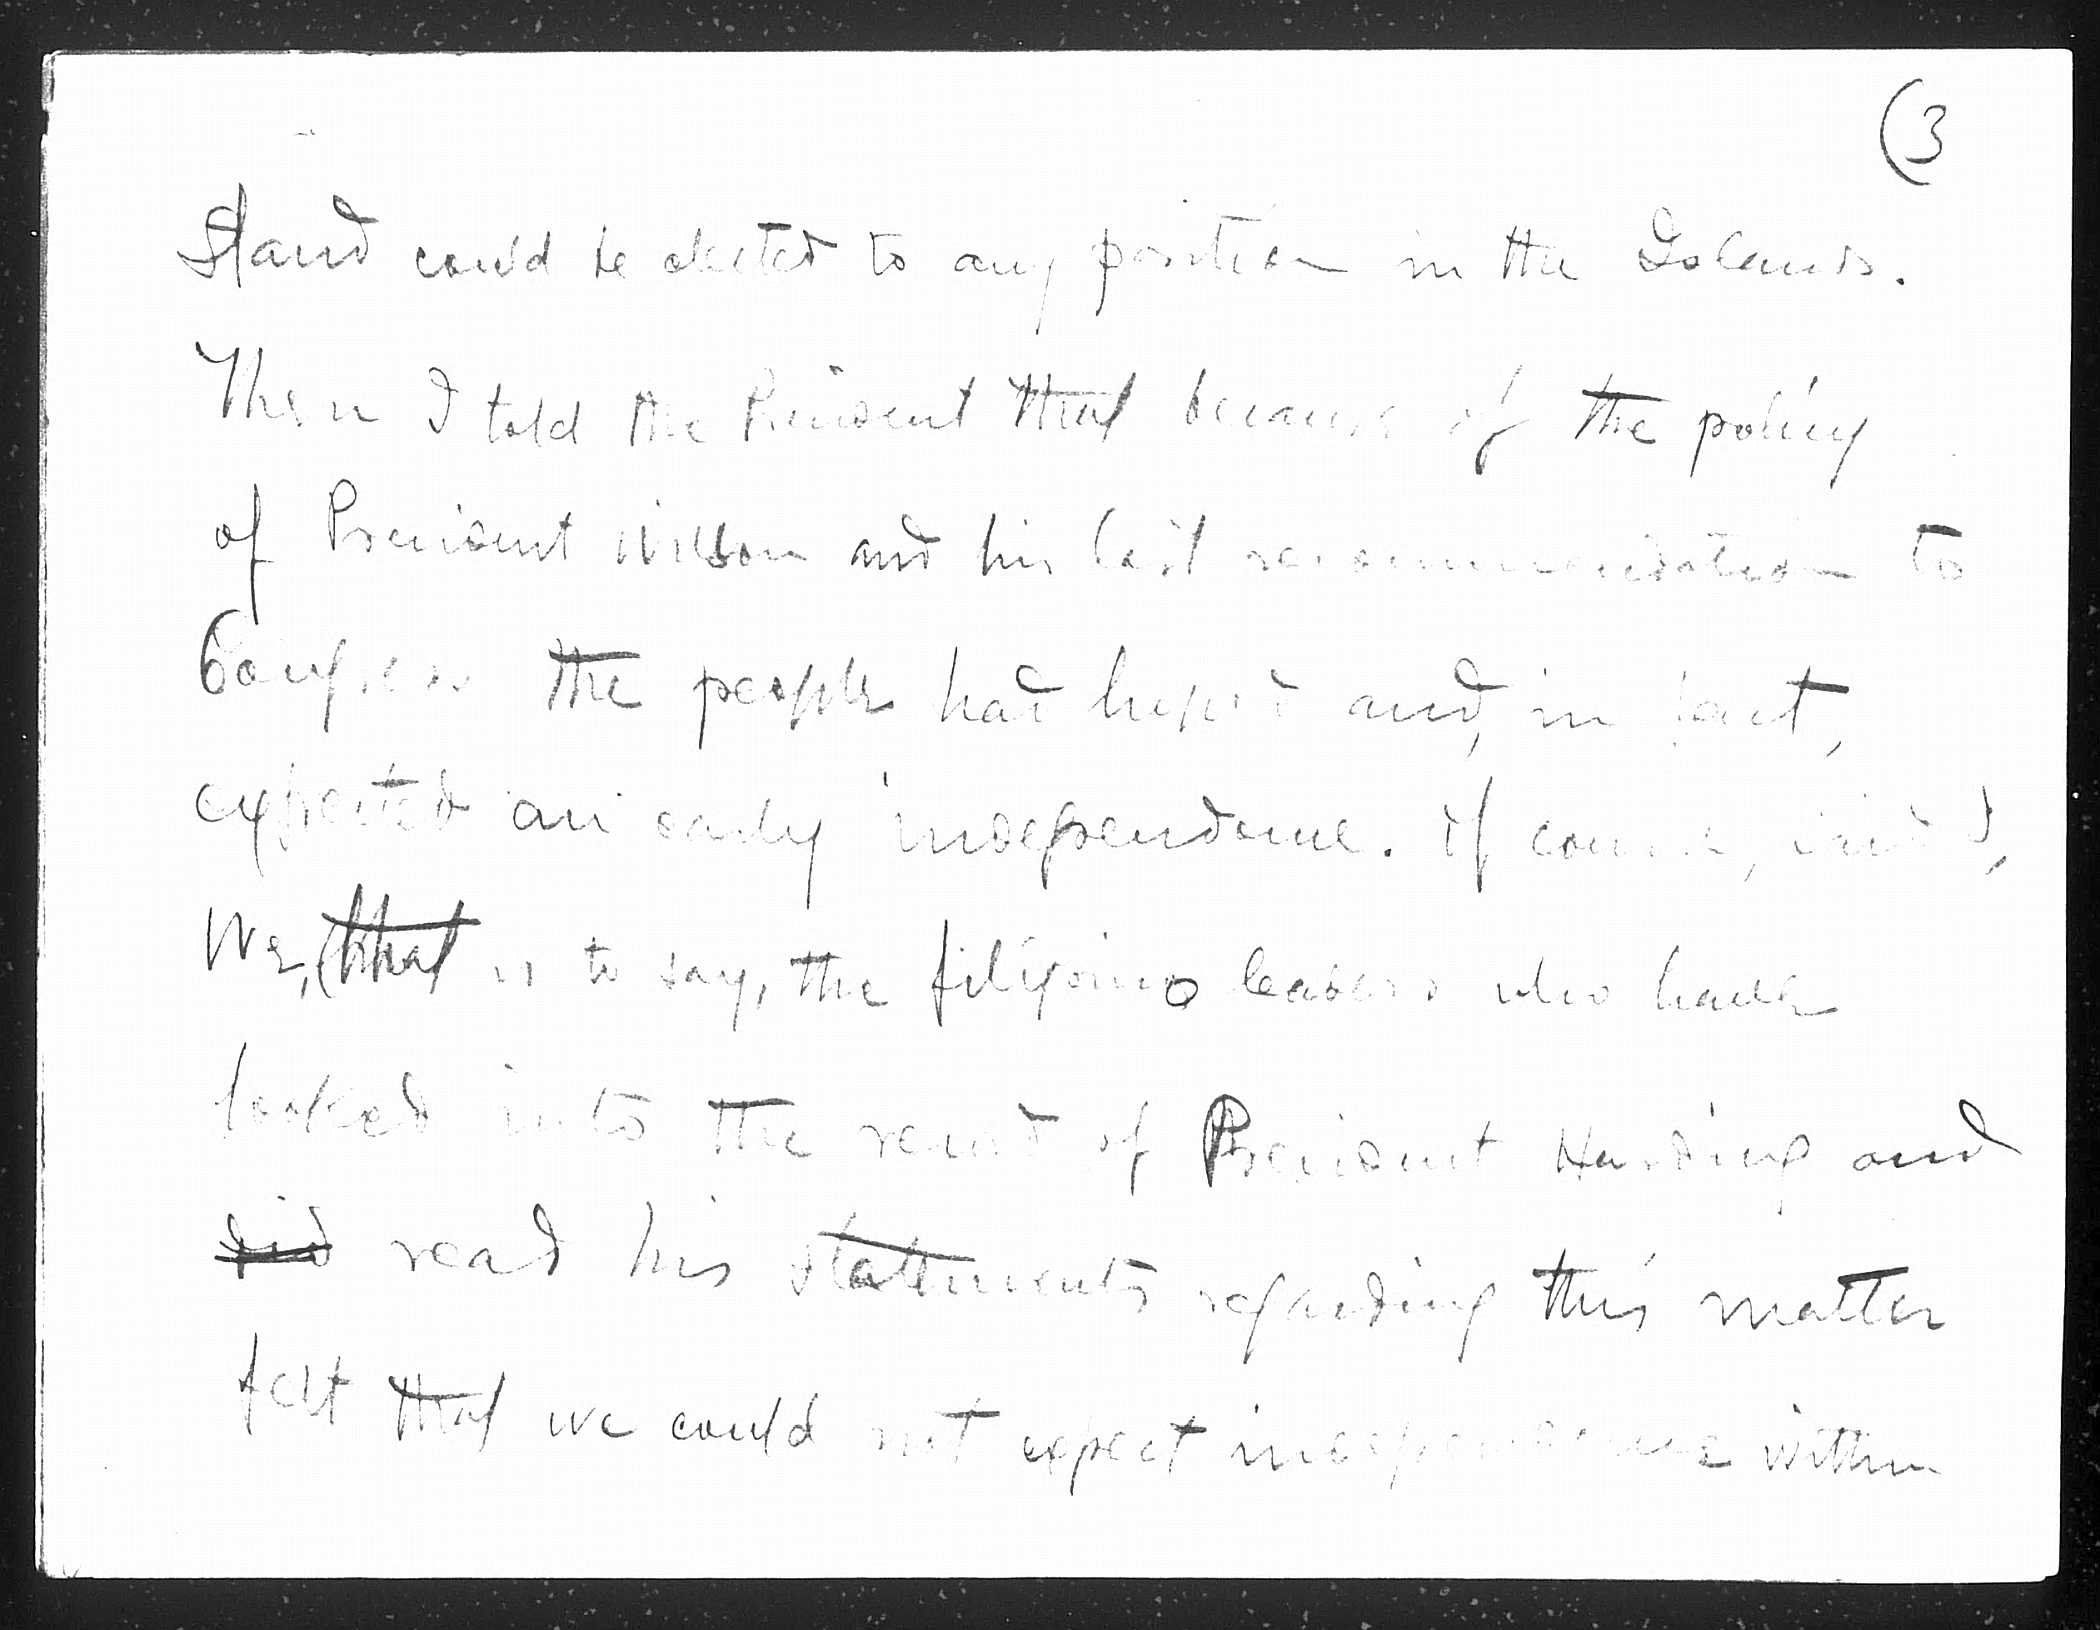 (3
Stand could be elected to any position in the Islands.
Then I told the President that because of the policy
of President Wilson and his last recommendation to
Congress the people had hoped and, in fact,
expected an early independence. Of course, said I,
We, (that is to say, the filipino leaders who have
looked into the record of President Harding and
did read his statements regarding this matter
felt that we could not expect independence within